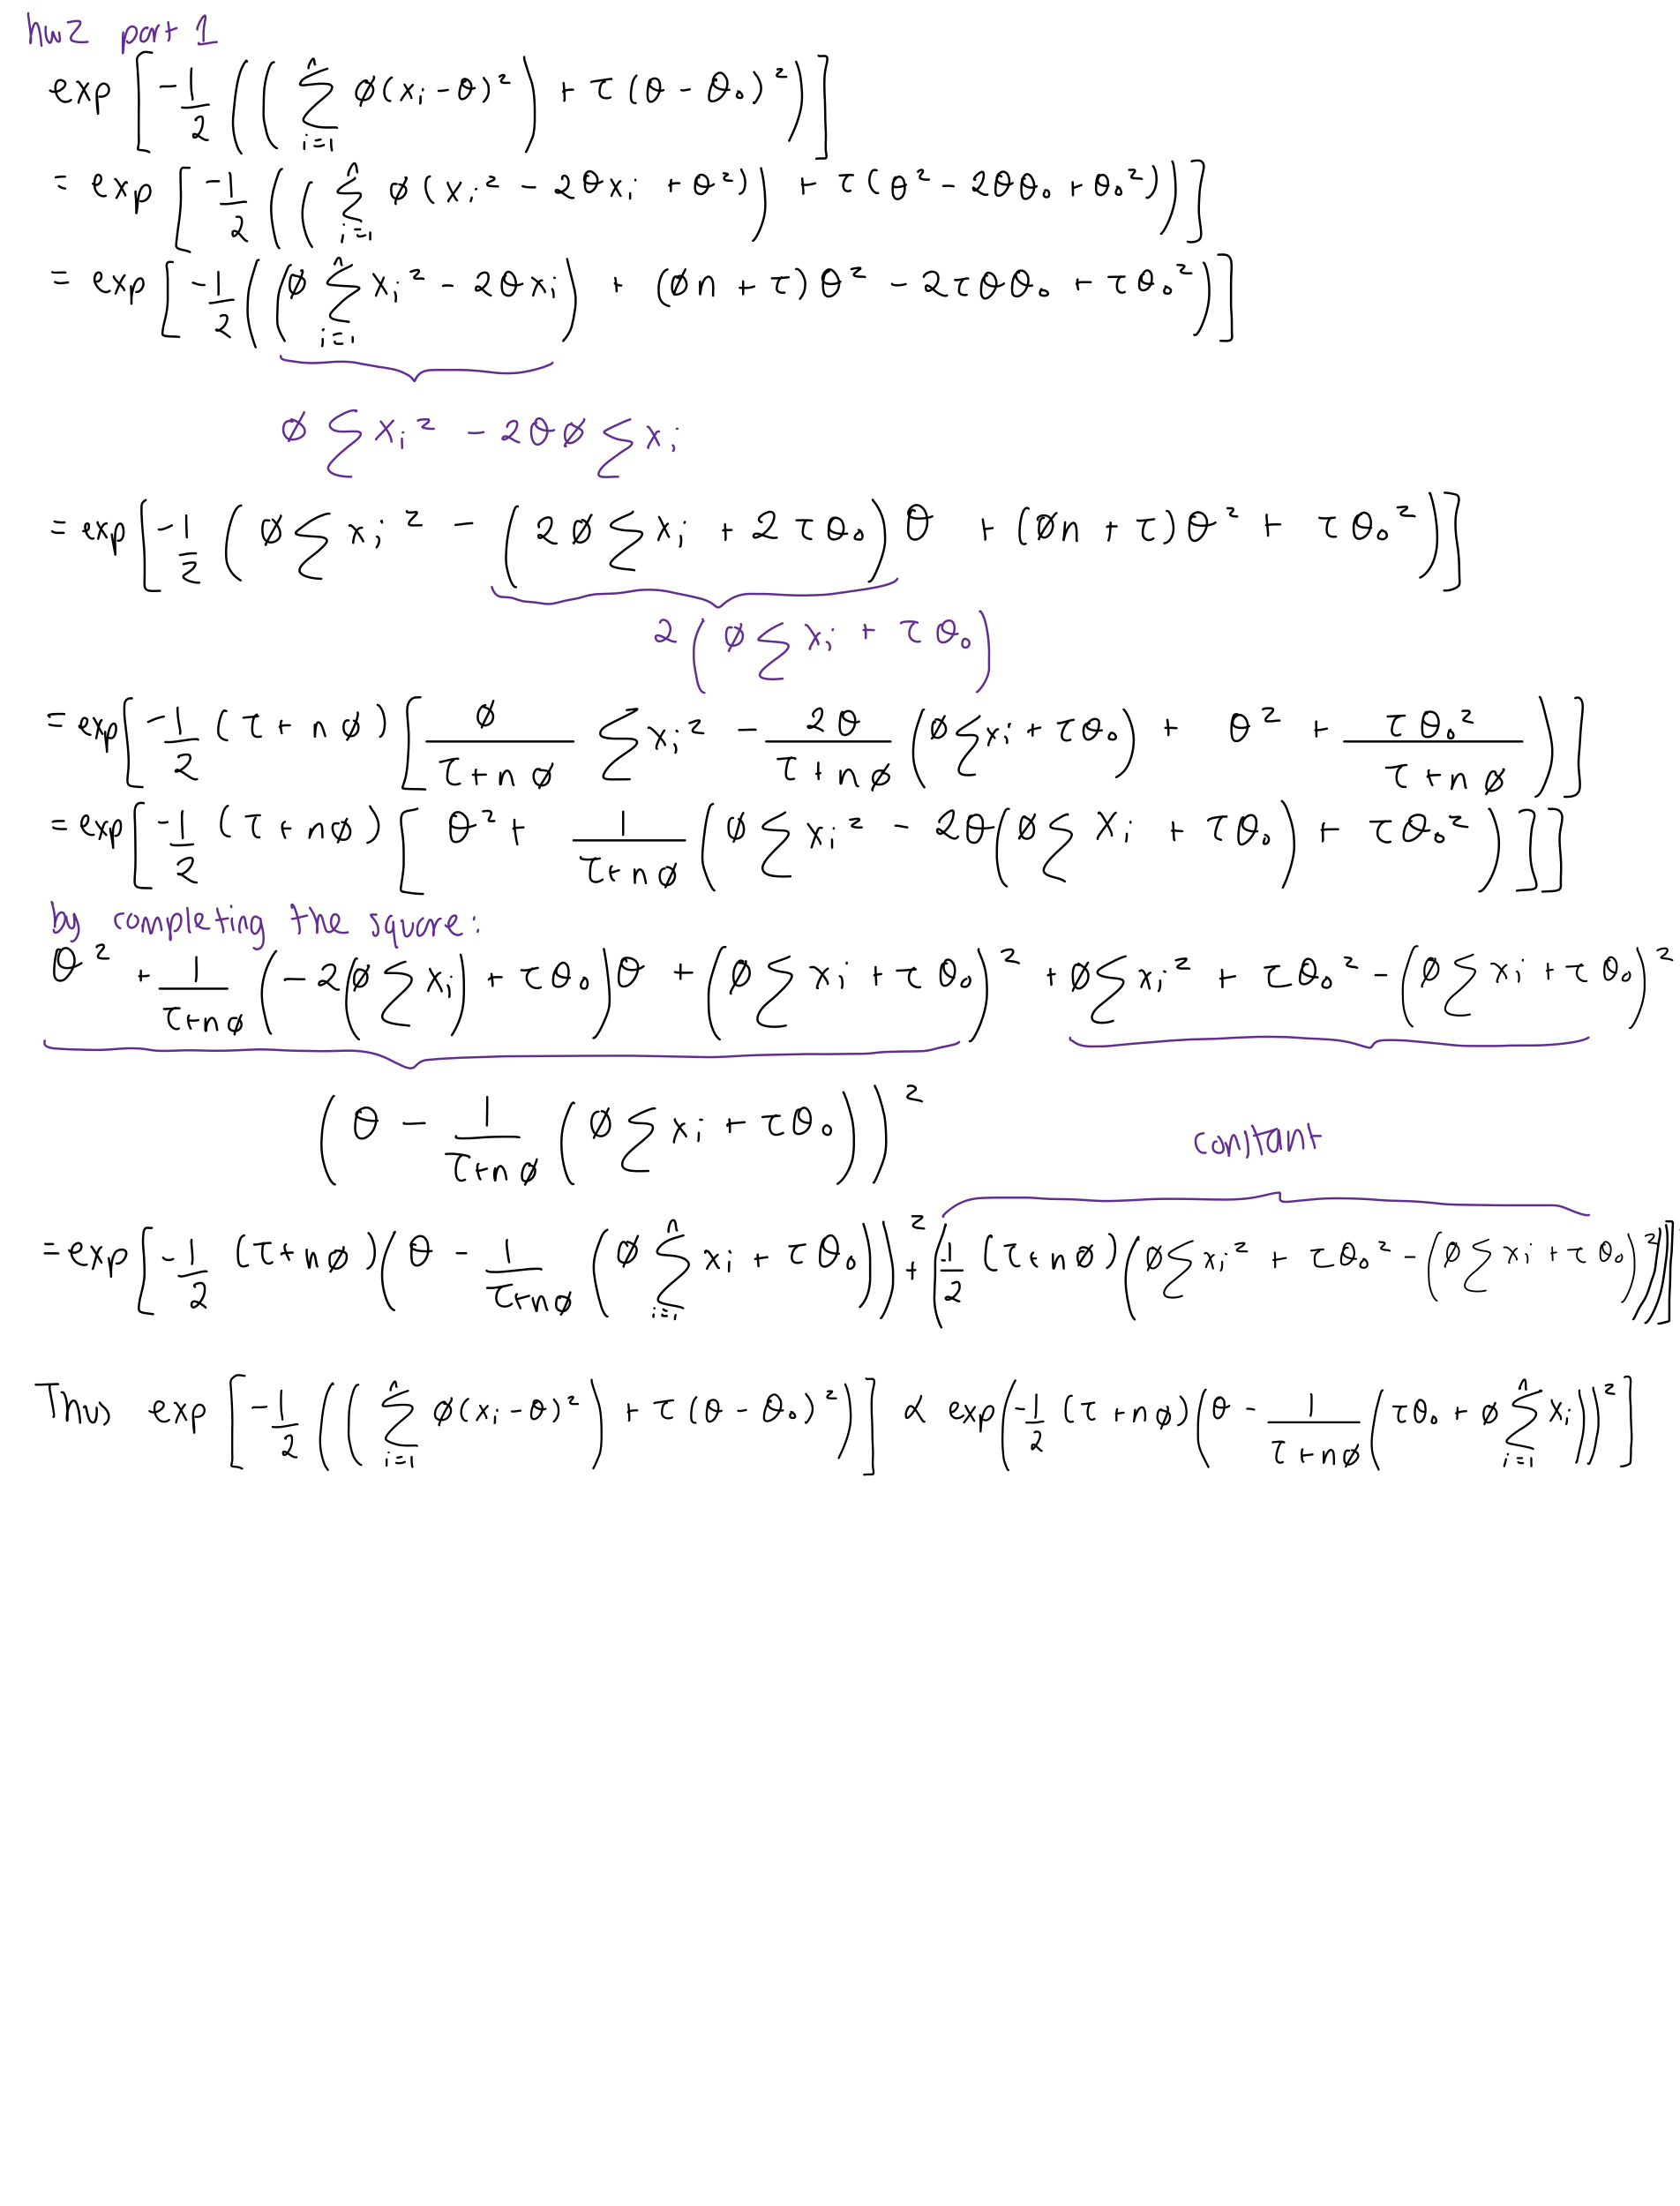 hw2 part 1
exp[-1/2((∑_{i=1}^{n} ϕ(x_i - θ)²) + τ(θ - θ₀)²)]
= exp[-1/2((∑_{i=1}^{n} ϕ(x_i² - 2θx_i + θ²)) + τ(θ² - 2θθ₀ + θ₀²))]
= exp[-1/2((ϕ∑_{i=1}^{n} x_i² - 2θx_i) + (ϕn + τ)θ² - 2τθθ₀ + τθ₀²)]
ϕ∑x_i² - 2θϕ∑x_i
= exp[-1/2(ϕ∑x_i² - (2ϕ∑x_i + 2τθ₀)θ + (ϕn + τ)θ² + τθ₀²)]
2(ϕ∑x_i + τθ₀)
= exp[-1/2(τ + nϕ)[ϕ/(τ + nϕ) ∑x_i² - 2θ/(τ + nϕ) (ϕ∑x_i + τθ₀) + θ² + τθ₀²/(τ + nϕ))]
= exp[-1/2(τ + nϕ)[θ² + 1/(τ + nϕ) (ϕ∑x_i² - 2θ(ϕ∑x_i + τθ₀) + τθ₀²)]]
by completing the square:
θ² + 1/(τ + nϕ) (-2(ϕ∑x_i) + τθ₀)θ + (ϕ∑x_i + τθ₀)² + ϕ∑x_i² + τθ₀² - (ϕ∑x_i + τθ₀)²
(θ - 1/(τ + nϕ) (ϕ∑x_i + τθ₀))²
constant
= exp[-1/2(τ + nϕ)(θ - 1/(τ + nϕ) (ϕ∑_{i=1}^{n} x_i + τθ₀))² + (-1/2(τ + nϕ)(ϕ∑x_i² + τθ₀² - (ϕ∑x_i + τθ₀)²))]
Thus exp[-1/2((∑_{i=1}^{n} ϕ(x_i - θ)²) + τ(θ - θ₀)²)] ∝ exp(-1/2(τ + nϕ)(θ - 1/(τ + nϕ) (τθ₀ + ϕ∑_{i=1}^{n} x_i))²]